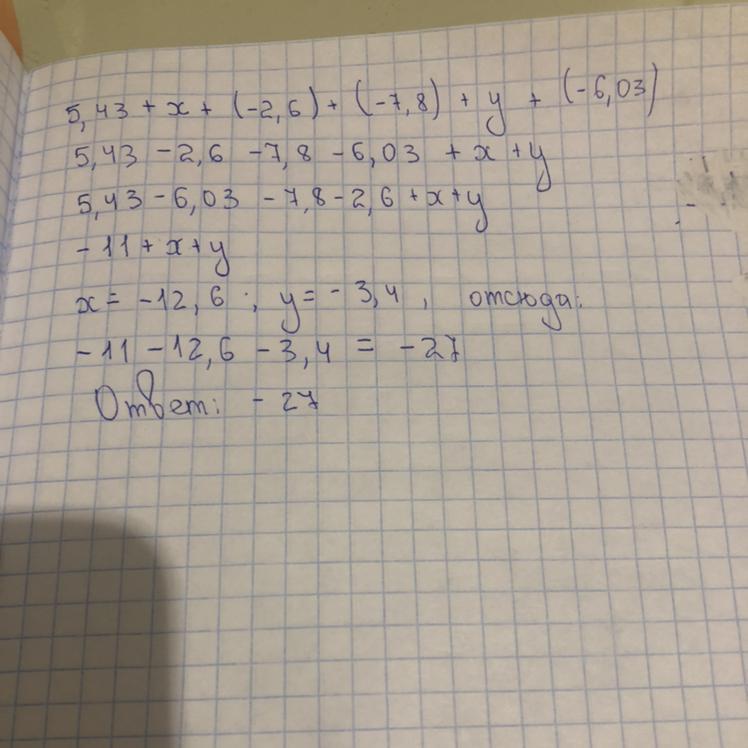 5,43 + x + (-2,6) + (-7,8) + y + (-6,03)
5,43 - 2,6 - 7,8 - 6,03 + x + y
5,43 - 6,03 - 7,8 - 2,6 + x + y
- 11 + x + y
x = -12,6 ; y = - 3,4 , отсюда:
- 11 - 12,6 - 3,4 = - 27
Ответ: - 27